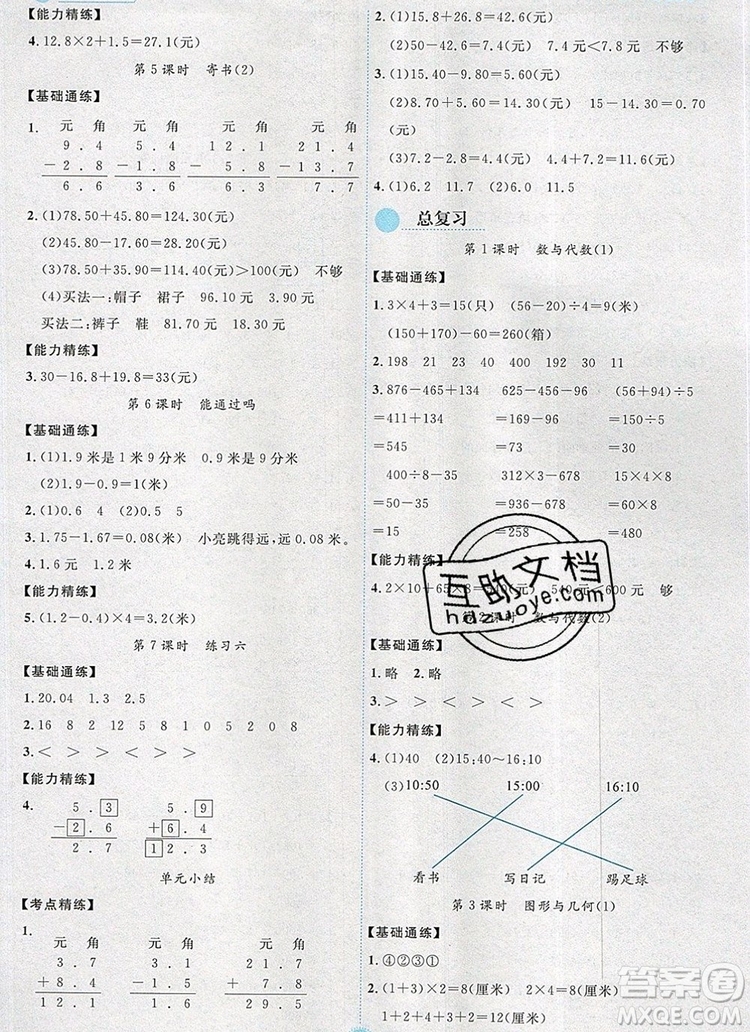 【能力精练】
4. 12.8×2+1.5=27.1(元)
第5课时 寄书(2)
【基础通练】
1. 元 角 元 角 元 角 元 角
9.4 3.6 12.1 21.4
-2.8 -1.8 -5.8 -13.7
6.6 3.6 7.7
2. (1)78.50+45.80=124.30(元)
(2)45.80-17.60=28.20(元)
(3)78.50+35.80=114.30>100(元) 不够
(4)买法一:帽子 裙子 96.10元 3.90元
买法二:裤子 鞋 81.70元 18.30元
【能力精练】
3. 30-16.8+19.8=33(元)
第6课时 能通过吗
【基础通练】
1. (1)1.9米是1米9分米 0.9米是9分米
(2)1.9-0.9=1(米)
2. (1)0.6 4 (2)0.5 1
3. 1.75-1.67=0.08(米) 小亮跳得远,远0.08米。
4. 1.6元 1.2米
【能力精练】
5. (1.2-0.4)×4=3.2(米)
第7课时 练习六
【基础通练】
1. 20.04 1.3 2.5
2. 16 8 2 12 5 8 10 5 2 0 8
3. < > < > > <
【能力精练】
4. 5.3 5.9
-2.6 +6.4
2.7 12.3
单元小结
【考点精练】
1. 元 角 元 角 元 角
3.7 3.1 21.7
+8.4 +24.8 +7.8
12.1 29.5
2. (1)15.2+26.8=42(元)
(2)50-42.6=7.4(元) 7.4元<7.8元 不够
3. (1)5.40+8.70=14.10(元)
(2)8.70+5.60=14.30(元) 15-14.30=0.70
(元)
(3)7.2-2.8=4.4(元) 4.4+7.2=11.6(元)
4. (1)6.2 11.7 (2)6.0 11.5
总复习
第1课时 数与代数(1)
【基础通练】
1. 3×4+3=15(只) (56-20)÷4=9(米)
(150+170)-60=260(箱)
2. 198 21 23 40 400 192 30 11
3. 876-465+134 625-456-96 (56+94)÷5
=411+134 =169-96 =150÷5
=545 =73 =30
400÷8-35 312×3-678 15×4×8
=50-35 =936-678 =60×8
=15 =258 =480
【能力精练】
4. 2×10+65×8=540(元) 540元<600元 够
第2课时 数与代数(2)
【基础通练】
1. 略 2. 略
3. > < > < > <
【能力精练】
4. (1)40 (2)15:40~16:10
(3)10:50 15:00 16:10
看书 写日记 踢足球
第3课时 图形与几何(1)
【基础通练】
1. ④②③①
2. (1+3)×2=8(厘米) 2×4=8(厘米)
1+2+4+3+2=12(厘米)
互助文档
hdzuoye.com
答案圈
MXQE.COM